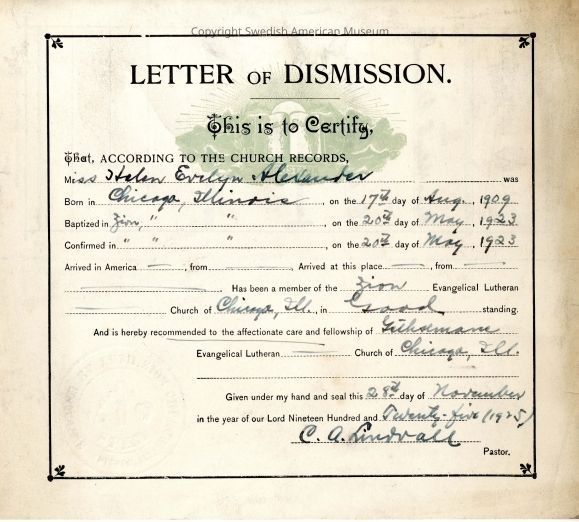 Copyright Swedish American Museum
LETTER OF DISMISSION.
This is to Certify,
That, ACCORDING TO THE CHURCH RECORDS,
Miss Helen Evelyn Alexander was
Born in Chicago, Illinois, on the 17th day of Aug., 1909
Baptized in Zion, " ", on the 20th day of May, 1923
Confirmed in " " ", on the 20th day of May, 1923
Arrived in America, from Arrived at this place, from
Has been a member of the Zion Evangelical Lutheran
Church of Chicago, Ill., in Good standing.
And is hereby recommended to the affectionate care and fellowship of Gethsemane
Evangelical Lutheran Church of Chicago, Ill.
Given under my hand and seal this 28th day of November
in the year of our Lord Nineteen Hundred and Twenty-five (1925)
C. A. Lindvall
Pastor.